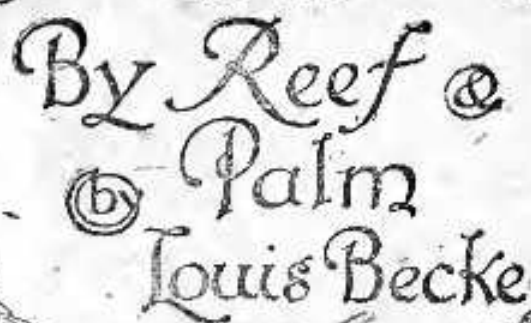 By Reef &
Palm
by
Louis Becke